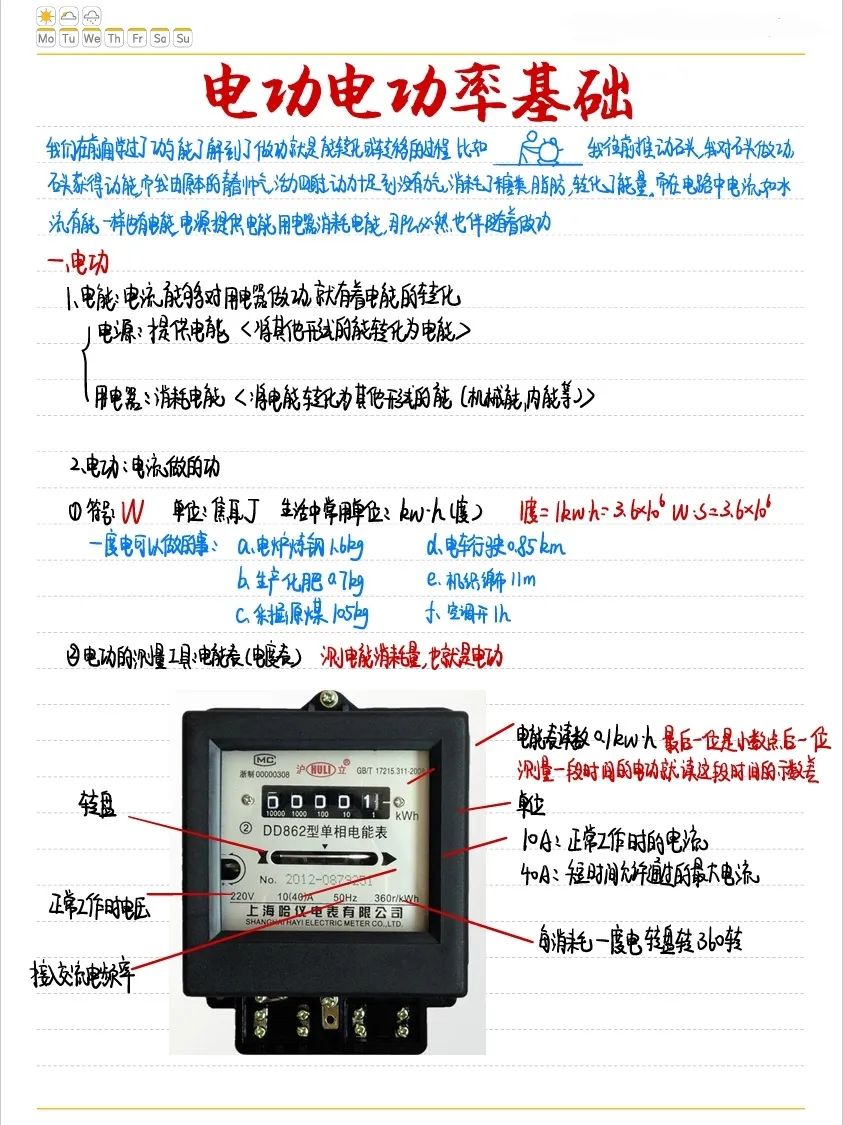 Mo Tu We Th Fr Sa Su
电功电功率基础
我们在前面学过了功与能了解到了做功就是能转化或转移的过程 比如 我往前推动石头,我对石头做功,
石头获得动能,而我由原本的青春帅气,活力四射,动力十足到没有力气,消耗了糖类,脂肪,转化了能量,而在电路中电流,和水
流有能一样也有电能,电源提供电能,用电器消耗电能,那么必然也伴随着做功
一.电功
1.电能:电流能够对用电器做功,就有着电能的转化
电源:提供电能 <将其他形式的能转化为电能>
用电器:消耗电能 <将电能转化为其他形式的能(机械能,内能等)>
2.电功:电流做的功
①符号:W 单位:焦耳J 生活中常用单位:kw·h(度) 1度=1kw·h=3.6×10⁶ W·s=3.6×10⁶
一度电可以做的事: a.电炉炼钢1.6kg d.电车行驶0.85km
b.生产化肥0.7kg e.机织绵布11m
c.采掘原煤105kg f.空调开1h
②电功的测量工具:电能表(电度表) 测电能消耗量,也就是电功
电能表读数0.1kw·h 最后一位是小数点后一位
测量一段时间的电功就读这段时间的示数差
MC
浙制00000308
沪 HULI 立 ®
GB/T 17215.311-2008
0 0 0 0 1
10000 1000 100 10 1
kWh
转盘
单位
② DD862型单相电能表
10A:正常工作时的电流
40A:短时间允许通过的最大电流
No. 2012-0879251
220V 10(40)A 50Hz 360r/kWh
正常工作时电压
上海哈仪电表有限公司
SHANGHAI HAYI ELECTRIC METER CO.,LTD.
每消耗一度电转盘转360转
接入交流电频率